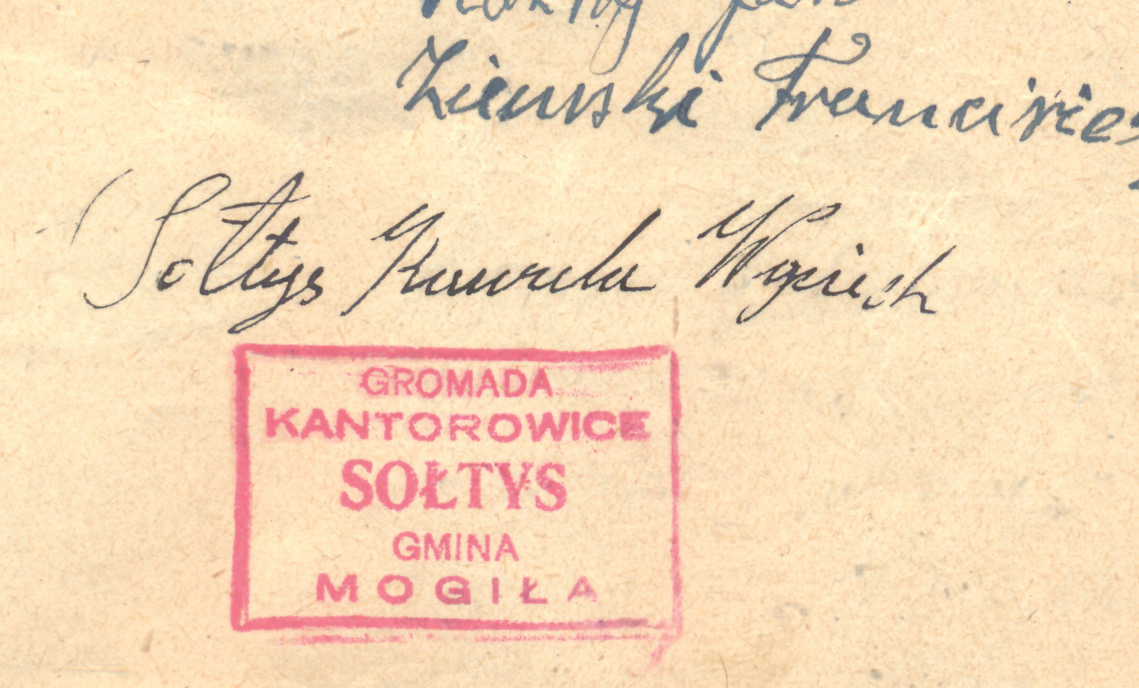 Ziemski Francisze
Sołtys Kawula Wojciech
GROMADA
KANTOROWICE
SOŁTYS
GMINA
MOGIŁA